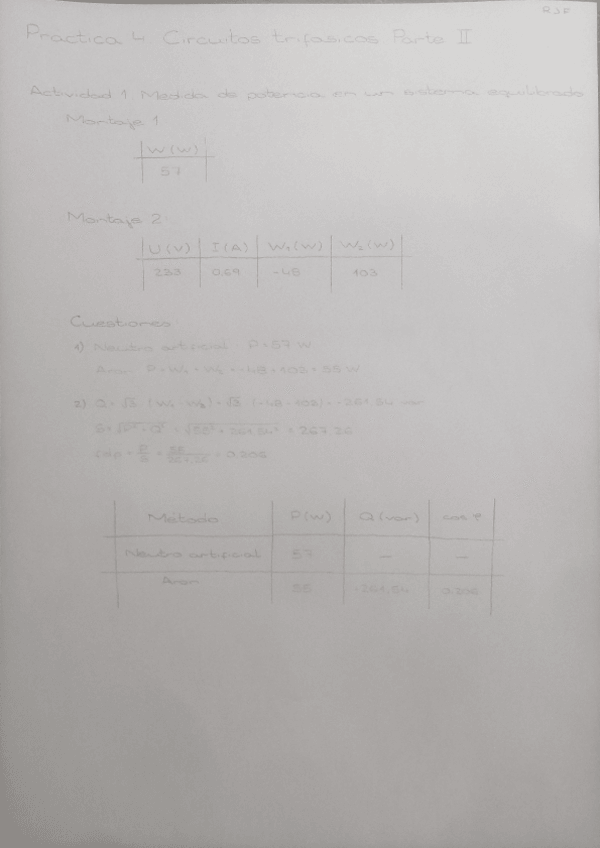 RJR
Practica 4 Circuitos trifasicos Parte II
Actividad 1 Medida de potencia en un sistema equilibrado
Montaje 1
W (W)
57
Montaje 2
U (V) I (A) W₁ (W) W₂ (W)
233 0.69 -48 103
Cuestiones
1) Neutro artificial P = 57 W
Aron P = W₁ + W₂ = -48 + 103 = 55 W
2) Q = √3 · (W₁ - W₂) = √3 · (-48 - 103) = -261.54 var
S = √P² + Q² = √55² + 261.54² = 267.26
= P/S = 55/267.26 = 0.206
Método P (W) Q (var) cos φ
Neutro artificial 57 — —
Aron 55 -261.54 0.206